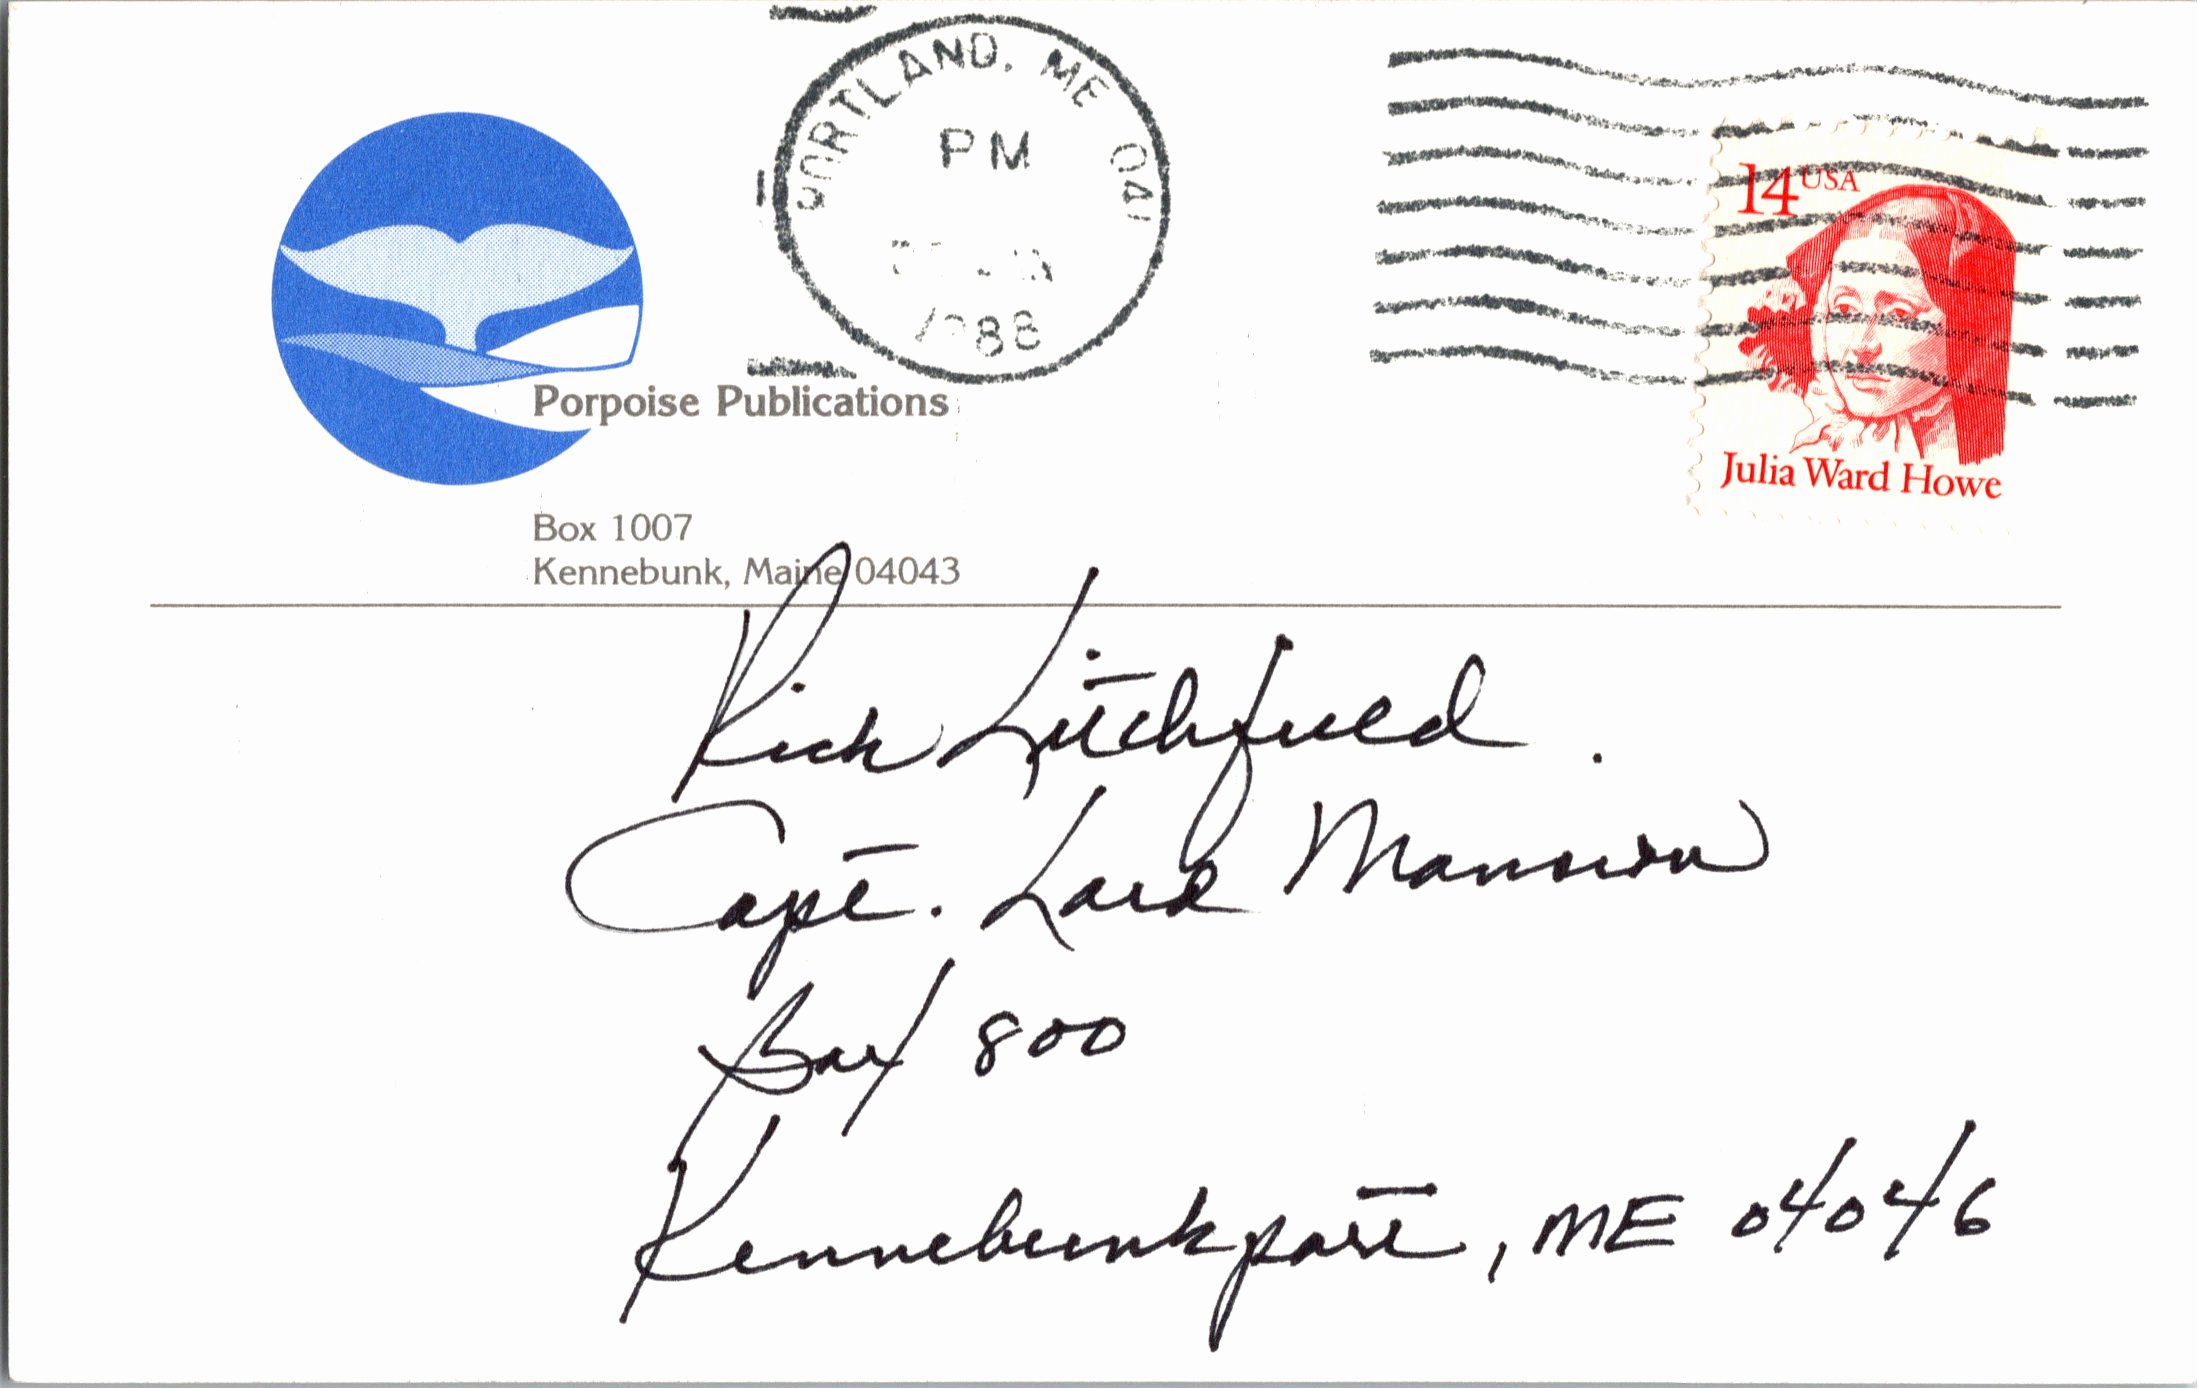 PORTLAND, ME 041
PM
1988
14 USA
Julia Ward Howe
Porpoise Publications
Box 1007
Kennebunk, Maine 04043
Rick Litchfield
Capt. Lord Mansion
Box 800
Kennebunkport, ME 04046